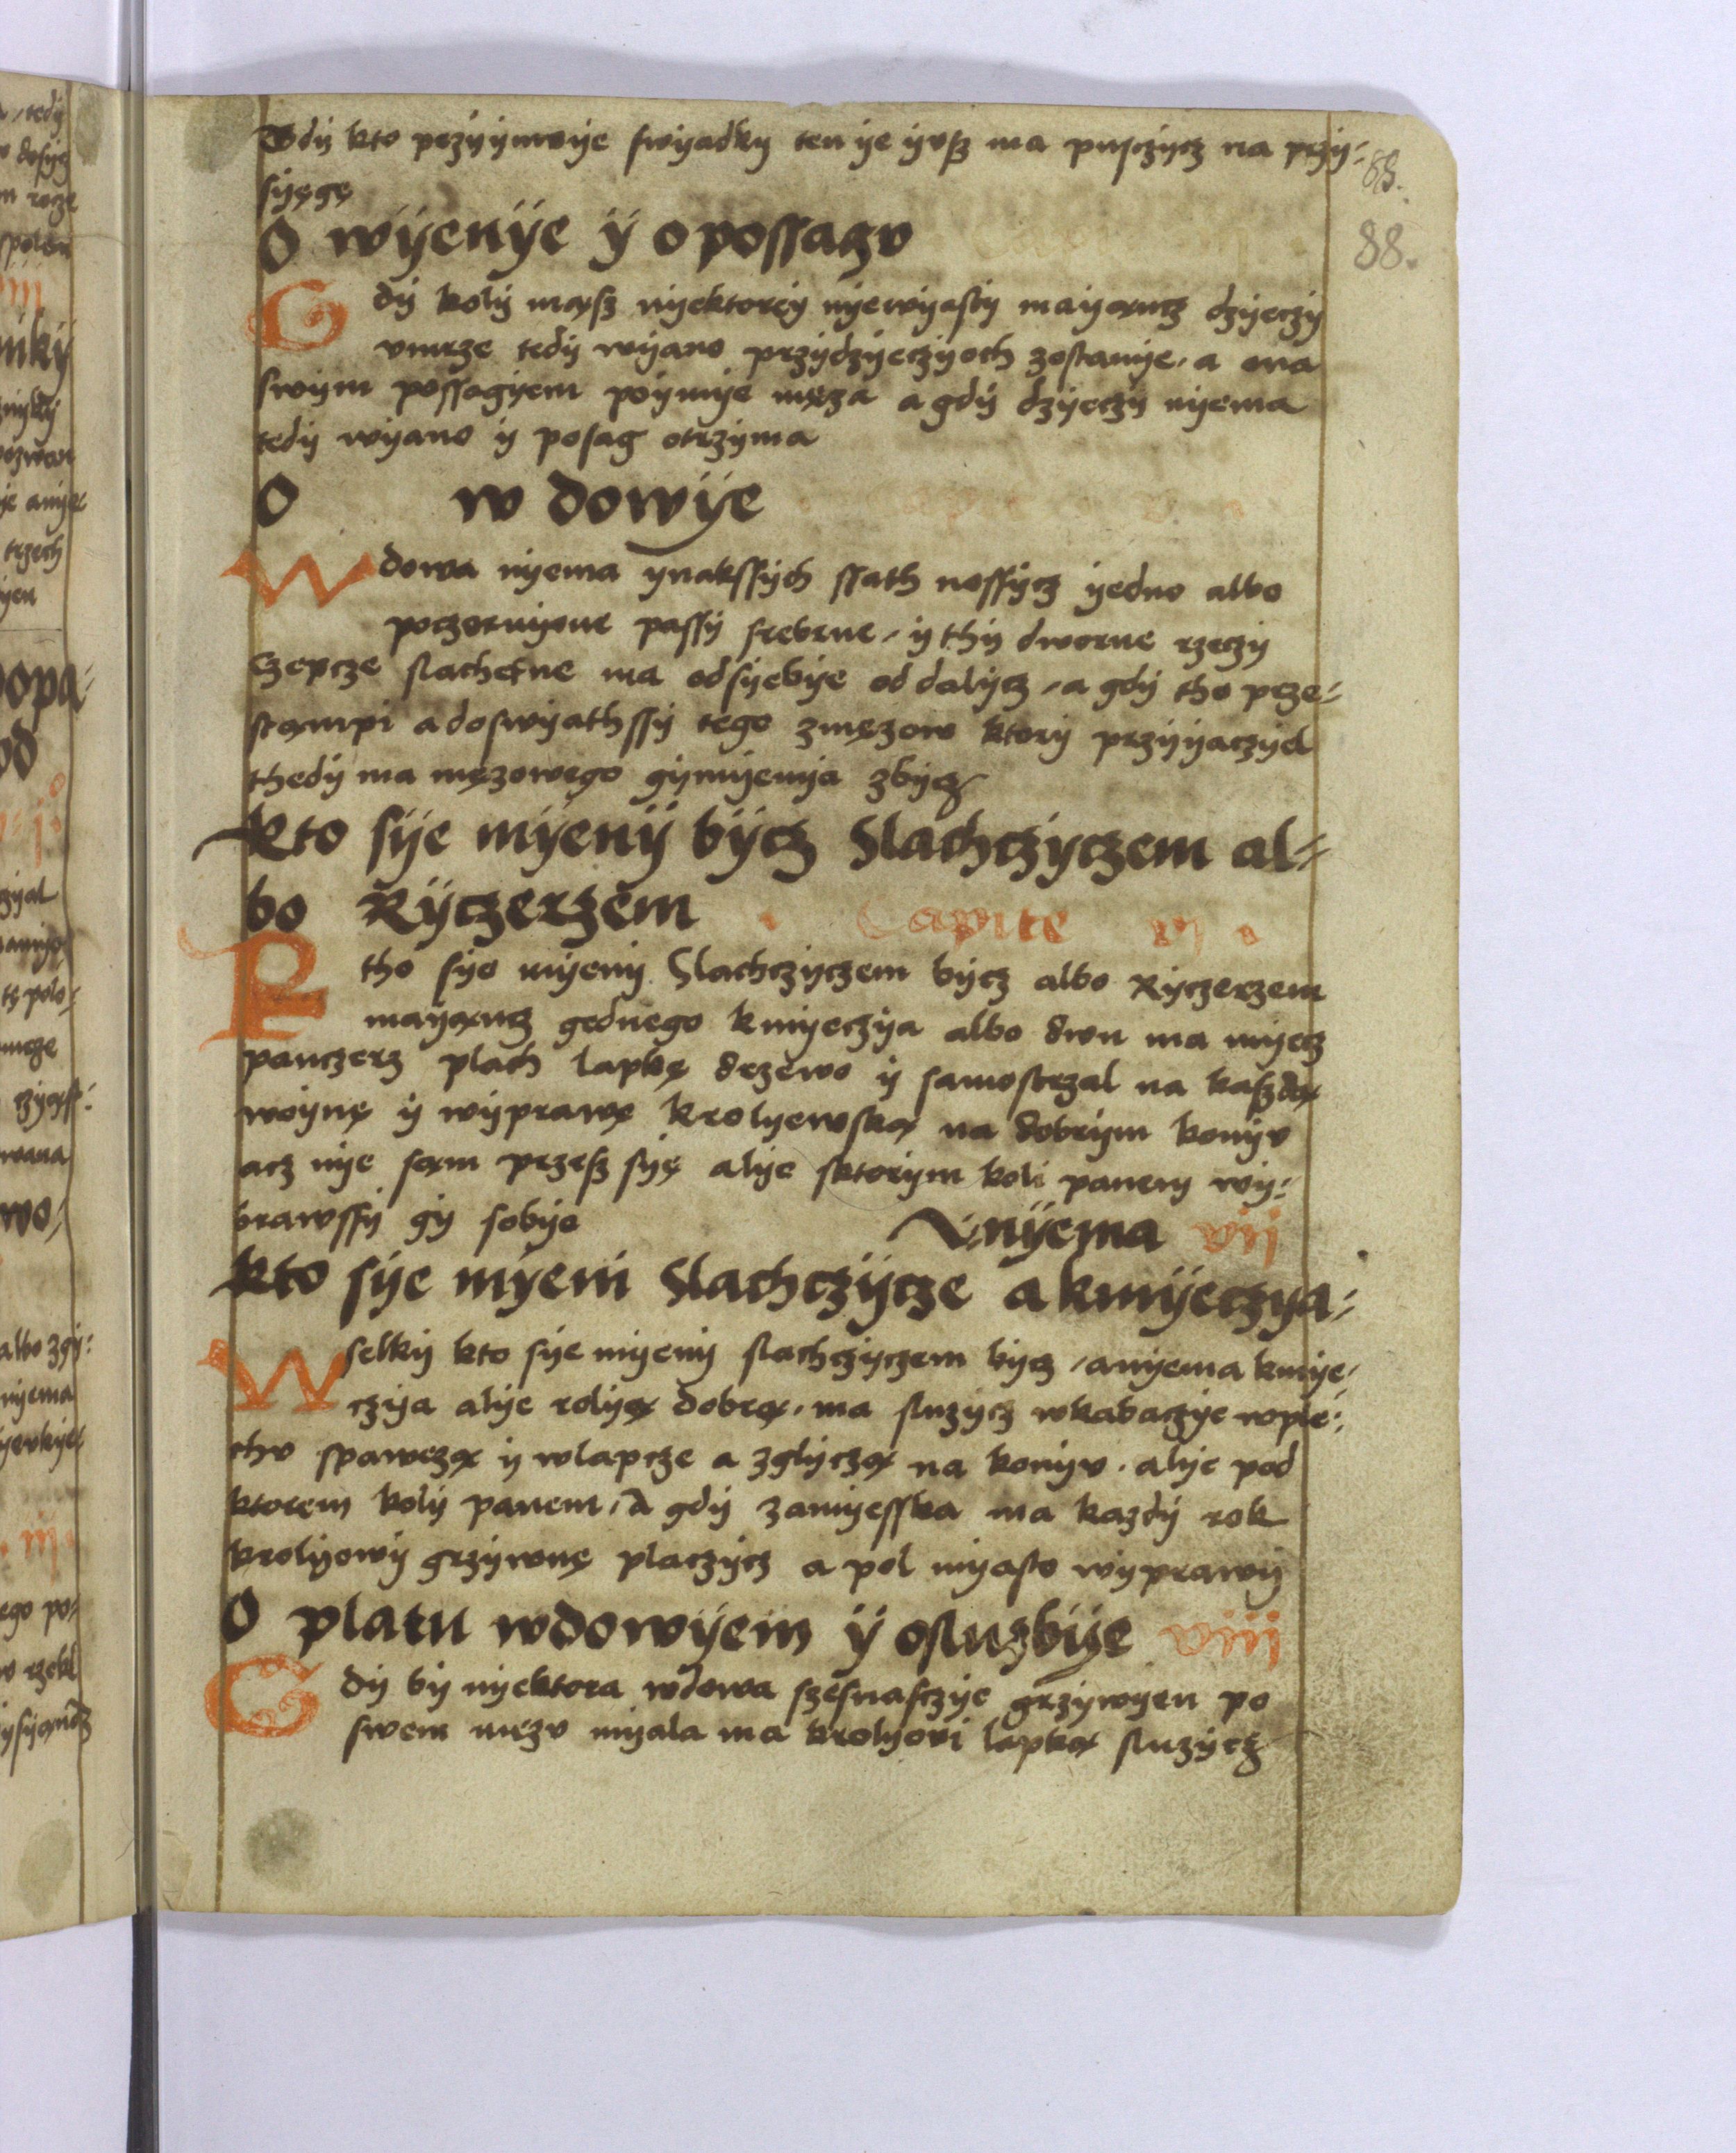 Gdy kto przyymvye swyadky ten ye yvsz ma pusczycz na przy-
syęgę
88.
88.
O wyenye y o possagv
Gdy koly mąsz nyektorey nyewyasty mayąncz dzyeczy
vmrze tedy wyano przydzyeczyoch zostanye, a ona
swym possagyem poymye męza a gdy dzyeczy nyema
tedy wyano y posag otrzyma
O w dowye
Wdowa nyema ynakssych ssath nossycz yedno albo
poczernyone passy srebrne, y thy dworne rzeczy
Czepcze slachetne ma odsyebye od dalycz, a gdy tho prze-
stąmpi a doswyathssy tego zmęzow ktory przyyaczyel
thedy ma męzowego gymyenya zbycz
kto sye myeny bycz Slachczyczem al-
bo Ryczerzem
Ktho syo myeny Slachczyczem bycz albo Ryczerzem
mayąncz gednego kmyeczya albo dwu ma myecz
panczerz plach lapkę drzewo y samostrzal na kaszdą
woynę y wyprawę krolyewską na dobrym konyv
acz nye sąm przesz syę alye sktorym koli panem wy-
brawssy gy sobye
nyema
kto sye myeni Slachczycze a kmyeczya-
Wselky kto sye myeny slachczyczem bycz, anyema kmye-
czya alye rolyą dobrą, ma sluzycz wkabaczye wple-
chv spawęzą y wlapcze a zglyczą na konyv. alye pod
ktorem koly panem, A gdy zamyesska ma kazdy rok
krolyowy grzywnę placzycz a pol myasto wyprawy
O platu wdowyem y osluzbye
Gdy by nyektora wdowa szesnasczye grzywyen po
swem męzv myala ma krolyovi lapką sluzycz